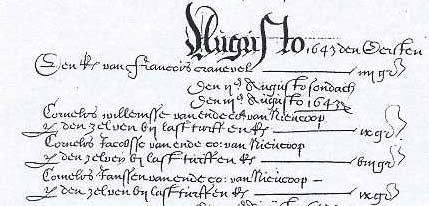 Augusto 1643 den Eersten
Een ks van françois cranevel iiij gr
den ijd Augusto sondach
den iijd Augusto 1643
Cornelis willemsse van ende co: van Nieucoop
den zelven bij last turff en ks ix gr
Cornelis Jacobsse van ende co: van Nieucoop
den zelven bij last turff en ks gr
Cornelis Janssen van ende co: van Nieucoop
den zelven bij last turff en ks ix gr